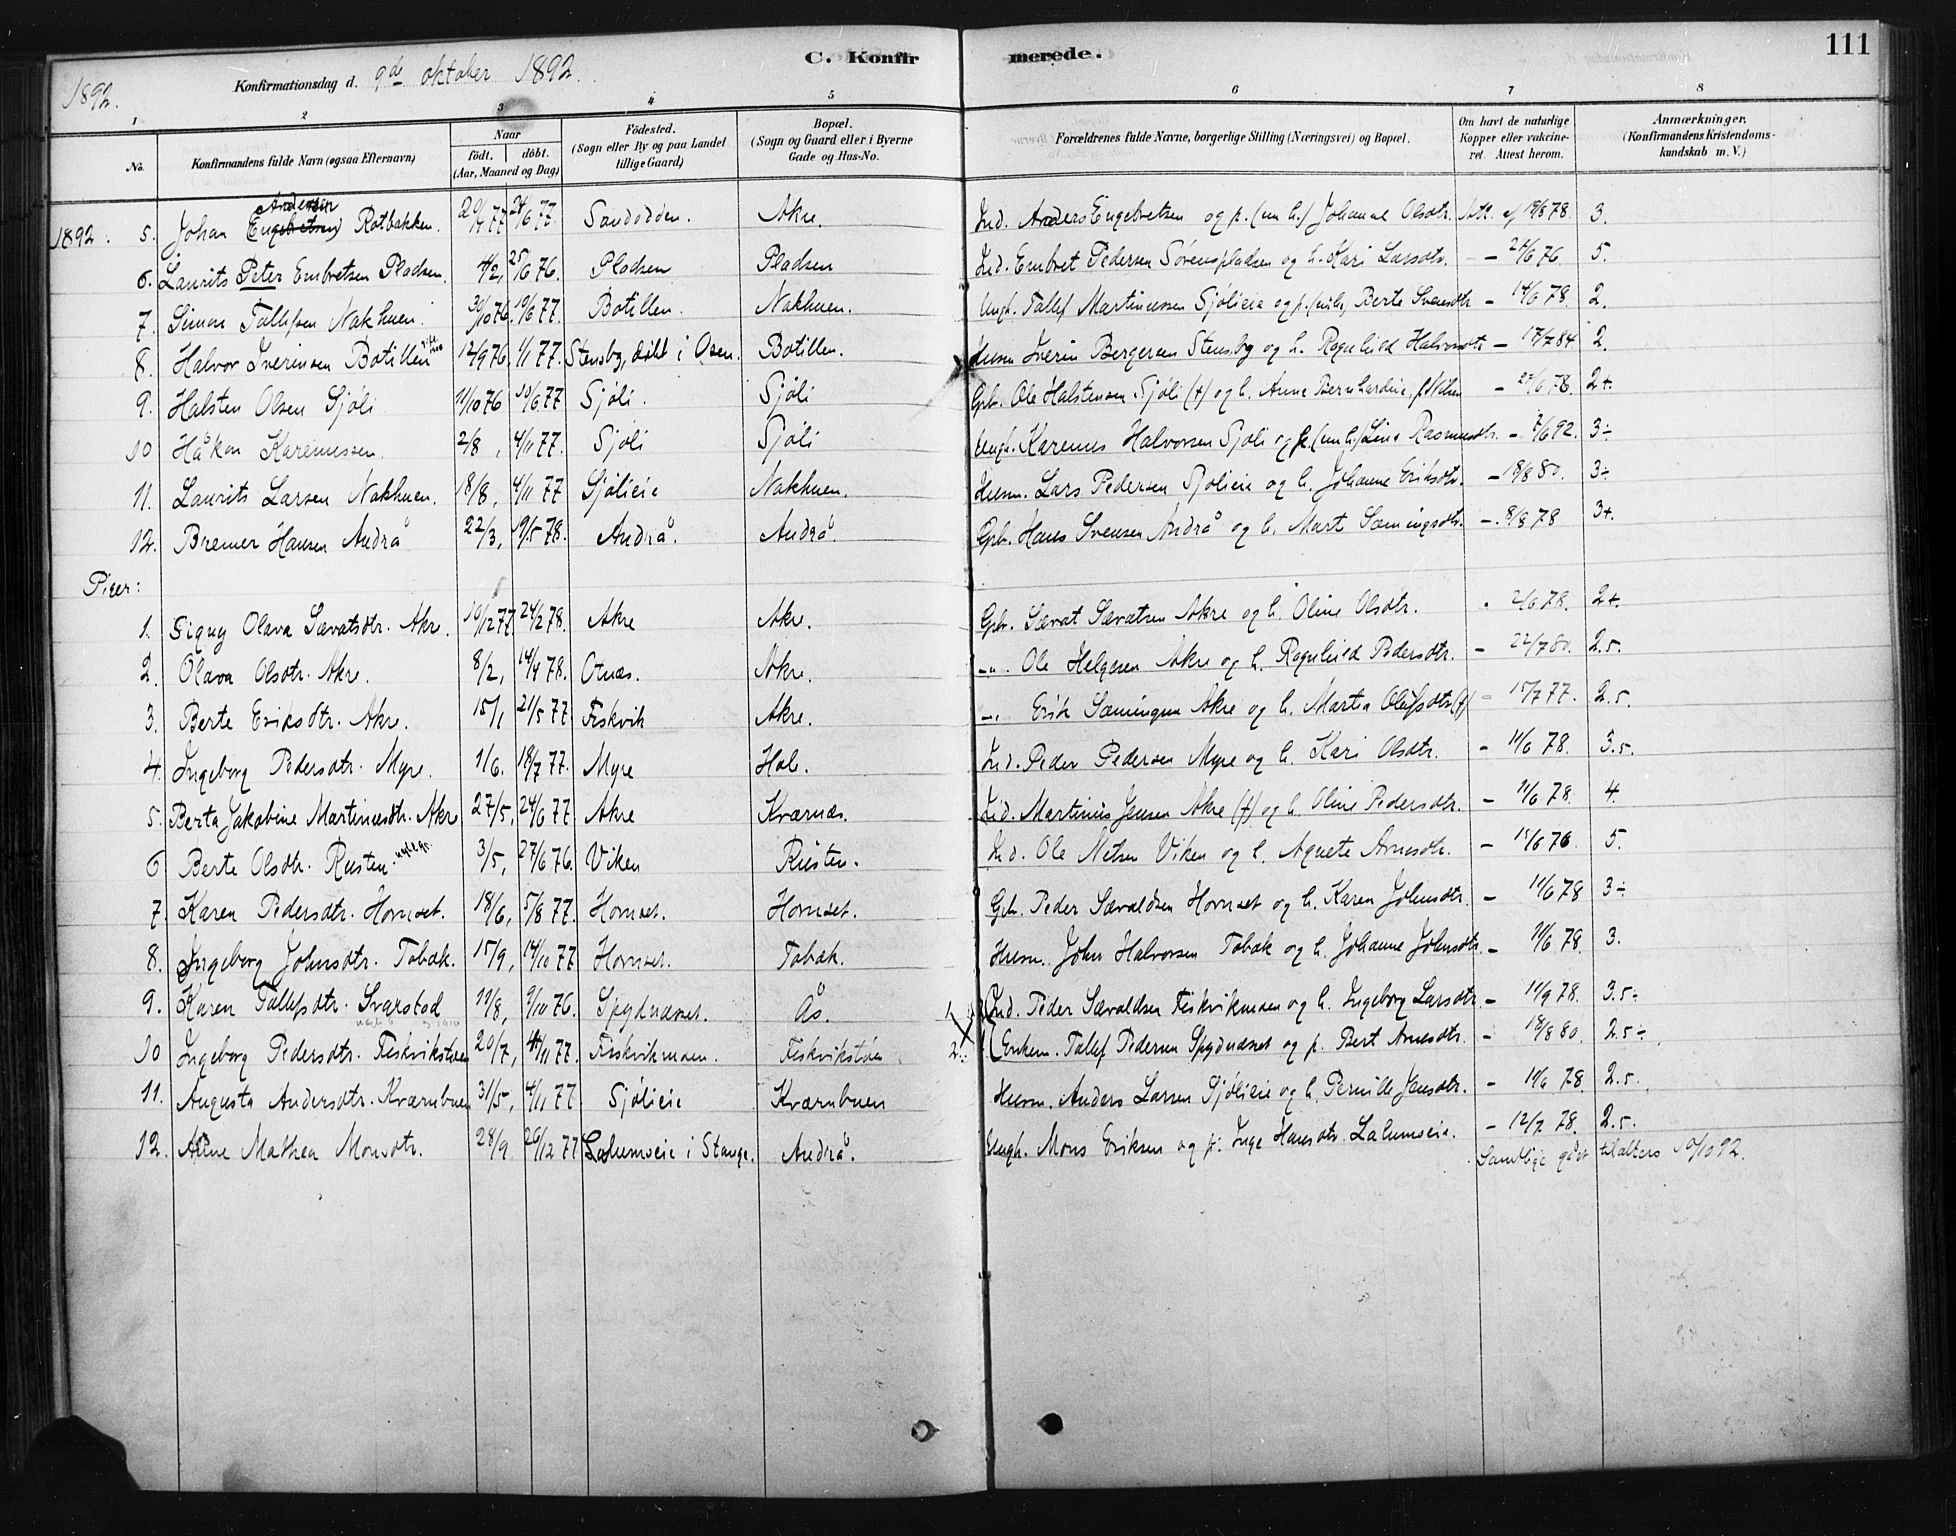 111
1892.
Konfirmationsdag d. 9de oktober 1892.
C. Konfirmerede.
1 2 3 4 5 6 7 8
No.
Konfirmandens fulde Navn (ogsaa Efternavn)
Naar
födt. döbt.
(Aar, Maaned og Dag)
Födested.
(Sogn eller By og paa Landet
tillige Gaard)
Bopæl.
(Sogn og Gaard eller i Byerne
Gade og Hus-No.
Forældrenes fulde Navne, borgerlige Stilling (Næringsvei) og Bopæl.
Om havt de naturlige
Kopper eller vakcine-
ret. Attest herom.
Anmærkninger.
(Konfirmandens Kristendoms-
kundskab m. V.)
Andersen
1892. 5. Johan (Engebretsen) Rotbakken. 20/4 77 24/6 77. Sandodden. Akre. Ind. Anders Engebretsen og p. (um h.) Johanne Olsdtr. Att. af 19/8 78. 3.
6. Laurits Peter Embretsen Pladsen. 4/2, 25/6 76. Pladsen Pladsen Ind. Embret Pedersen Sörenspladsen og h. Kari Larsdtr. - 24/6 76. 5.
7. Simon Tollefsen Nakhuen. 30/10 76. 10/6 77. Botillen. Nakhuen. Ungk. Tallef Martinussen Sjölieie og p. (um h.) Berte Svensdtr - 14/6 78. 2.
8. Halvor Iverinsen Botillen 12/9 76. 1/1 77. Stensby, döbt i Osen. Botillen. Husm Iverin Bergersen Stensby og h. Ragnhild Halvorsdtr - 17/7 84 2.
9. Halsten Olsen Sjöli 11/10 76 10/6 77 Sjöli. Sjöli Gbr. Ole Halstensen Sjöli (+) og h. Anne Bernhardine, f. Nilsen - 25/6 78. 2+.
10 Håkon Karenussen. 2/8, 4/11 77. Sjöli Sjöli Ungk. Karenus Halvorsen Sjöli og p. (um h.) Lina Rasmusdtr. - 7/6 92. 3÷
11. Laurits Larsen Nakhuen. 18/8, 4/11 77 Sjölieie Nakhuen. Husm. Lars Pedersen Sjölieie og h. Johanne Eriksdtr. - 18/8 80. 3÷
12. Bremer Hansen Andrå 22/3, 19/5 78. Andrå. Andrå. Gbr. Hans Svensen Andrå og h. Mart Sæmingsdtr. -. 8/8 78 3+.
Piger:
1. Signy Olava Sævatsdtr. Akre. 10/12 77. 24/2 78. Akre Akre. Gbr. Sævat Sævatsen Akre og h. Oline Olsdtr. 2/6 78. 2+.
2. Olava Olsdtr. Akre. 8/2, 14/4 78. Otnæs. Akre. -"- Ole Helgesen Akre og h. Ragnhild Pedersdtr. - 22/7 80. 2.5.
3. Berte Eriksdtr. Akre. 15/1 21/5 77. Fiskvik Akre. -"- Erik Sæmingsen Akre og h. Martia Olufsdtr. (+) - 15/7 77. 2.5.
4. Ingeborg Pedersdtr. Myre. 1/6. 18/7 77. Myre Hol. Ind. Peder Pedersen Myre og h. Kari Olsdtr. - 11/6 78. 3.5.
5. Berta Jakobine Martinusdtr. Akre 27/5, 24/6 77 Akre Kværnæs. Ind. Martinus Jensen Akre (+) og h. Oline Pedersdtr. - 11/6 78. 4.
6 Berte Olsdtr. Rusten. 3/5, 27/6 76. Viken Rusten. Ind. Ole Nilsen Viken og h. Agnete Arnesdtr. - 15/6 76. 5.
7. Karen Pedersdtr. Hornset. 18/6, 5/8 77. Hornset. Hornset. Gbr. Peder Sævaldsen Hornset og h. Karen Johnsdtr. - 11/6 78 3÷
8. Ingeborg Johnsdtr. Tobak. 15/9, 14/10 77 Hornset. Tobak. Husm. John Halvorsen Tobak og h. Johanne Johnsdtr. - 11/6 78. 3.
9. Karen Tallefsdtr. Svarstad 19/8, 9/10 76. Spydnæset. Ås. 1. Ind. Peder Sævaldsen Fiskvikmoen og h. Ingeborg Larsdtr - 11/9 78. 3.5÷
10 Ingeborg Pedersdtr. Fiskvikstöen 20/7, 4/11 77. Fiskvikmoen. Fiskvikstöen 2. Enkem. Tallef Pedersen Spydnæset og p. Bert Arnesdtr. - 18/8 80. 2.5÷
11. Augusta Andersdtr. Kværnbuen 31/5, 4/11 77 Sjölieie Kværnbuen Husm. Anders Larsen Sjölieie og h. Pernille Jensdtr. - 11/6 78. 2.5.
12. Aline Mathea Monsdtr. 28/9 26/12 77 Lalumseie i Stange. Andrå. Ungk. Mons Eriksen og p. Inge Hansdtr. Lalumseie. - 12/7 78. 2.5.
Samtlige gået til alters 10/10 92.